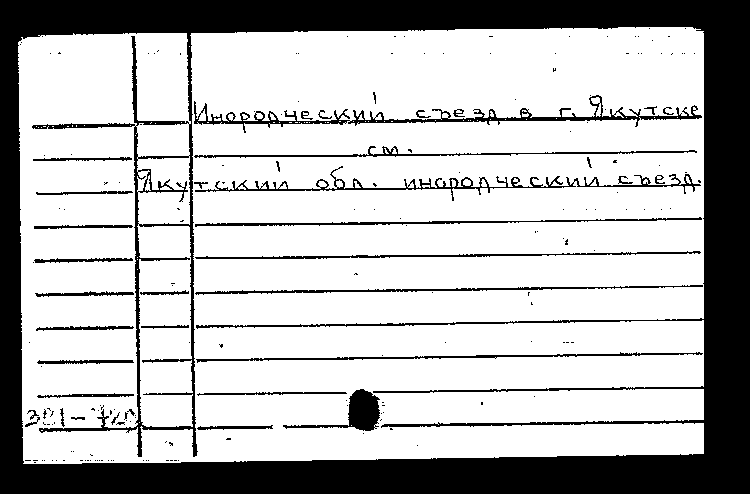 Инородческий съезд в г. Якутске
см.
Якутский обл. инородческий съезд.